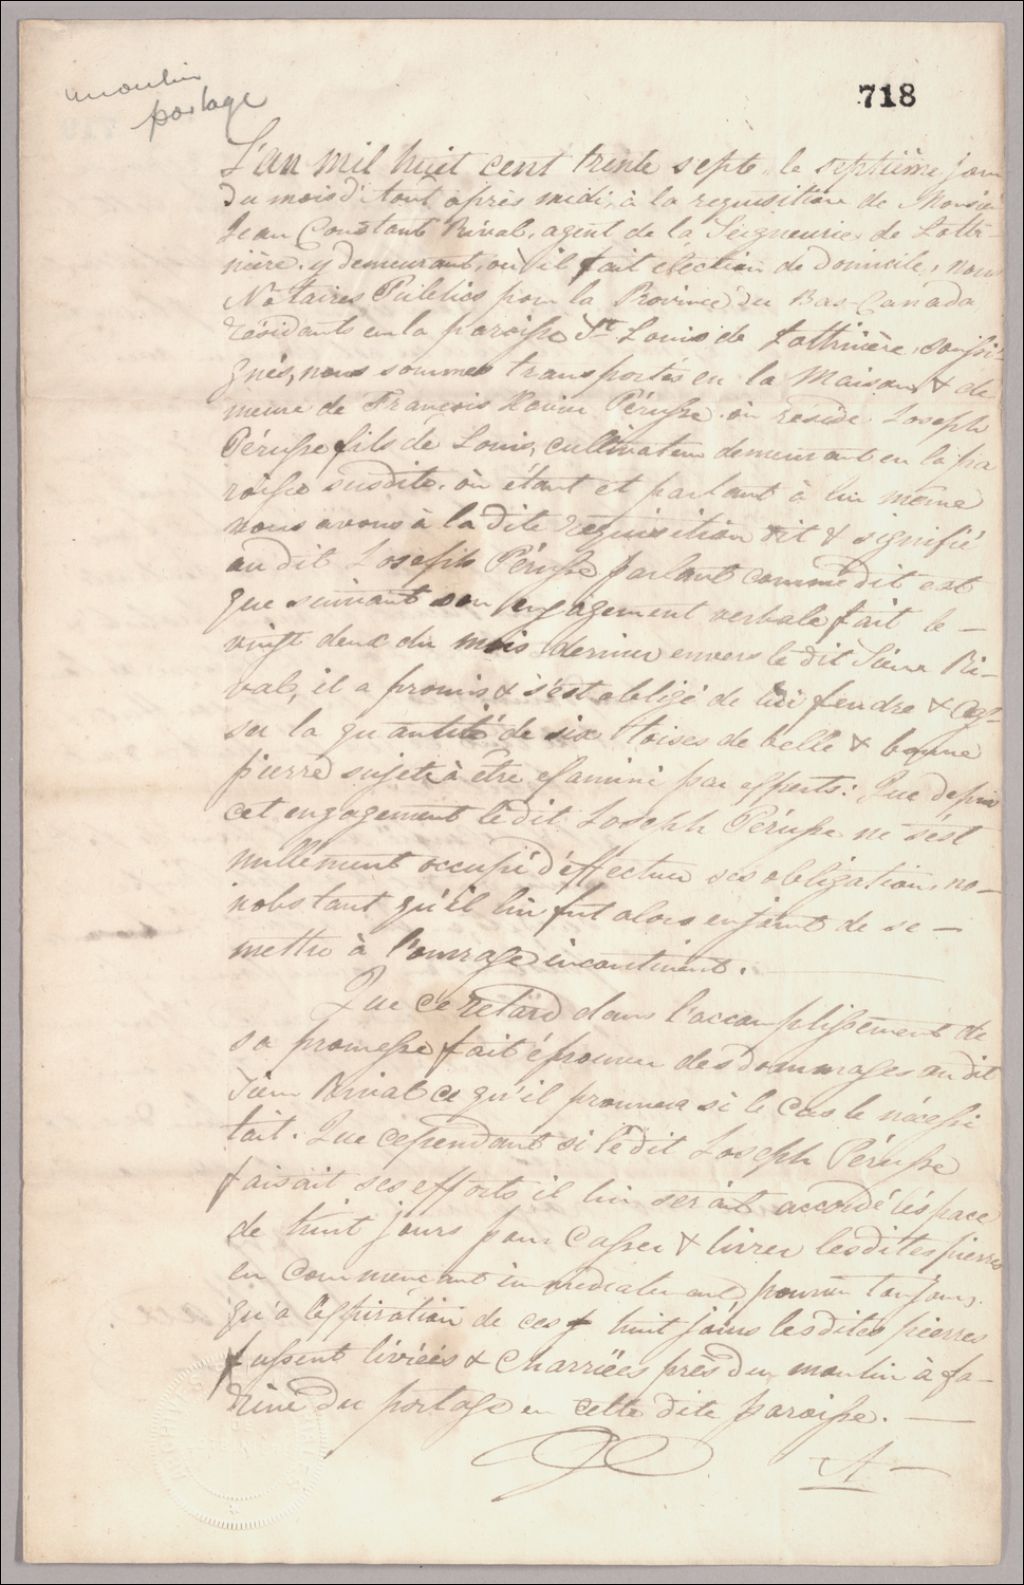 moulin
portage
718
L'an mil huit cent trente sept, le septième jour
du mois d'Août après midi, à la requisition de Monsieur
Jean Constant Rival, agent de la Seigneurie de Lotbi-
nière, y demeurant, où il fait election de domicile, nous
Notaires Publics pour la Province du Bas-Canada
résidants en la paroisse St Louis de Lotbinière, soussi-
gnés, nous sommes transportés en la Maison & de
meure de François Xavier Pérusse où reside Joseph
Pérusse fils de Louis, cultivateur demeurant en la pa
roisse susdite, où étant et parlant à lui même
nous avons à la dite requisition dit & signifié
au dit Joseph Pérusse parlant comme dit est
que suivant son engagement verbale fait le —
vingt deux du mois dernier envers le dit Sieur Ri-
val, il a promis & s'est obligé de lui fendre & Cas-
ser la quantité de six toises de belle & bonne
pierre sujete à être examiné par experts: Que depuis
cet engagement le dit Joseph Pérusse ne s'est
nullement occupé d'effectuer ses obligations, no-
nobstant qu'il lui fut alors enjoint de se —
mettre à l'ouvrage incontinent.
Que ce retard dans l'accomplissement de
sa promesse fait éprouver des dommages au dit
Sieur Rival ce qu'il prouvera si le cas le nécessi
tait. Que cependant si le dit Joseph Pérusse
faisait ses efforts il lui serait accordé l'éspace
de huit jours pour Casser & livrer les dites pierres
en Commencant immediatement pourvu toujours
qu'a l'expiration de ces huit jours les dites pierres
fussent livrées & Charriées près du moulin à fa-
rine du portage en cette dite paroisse. —